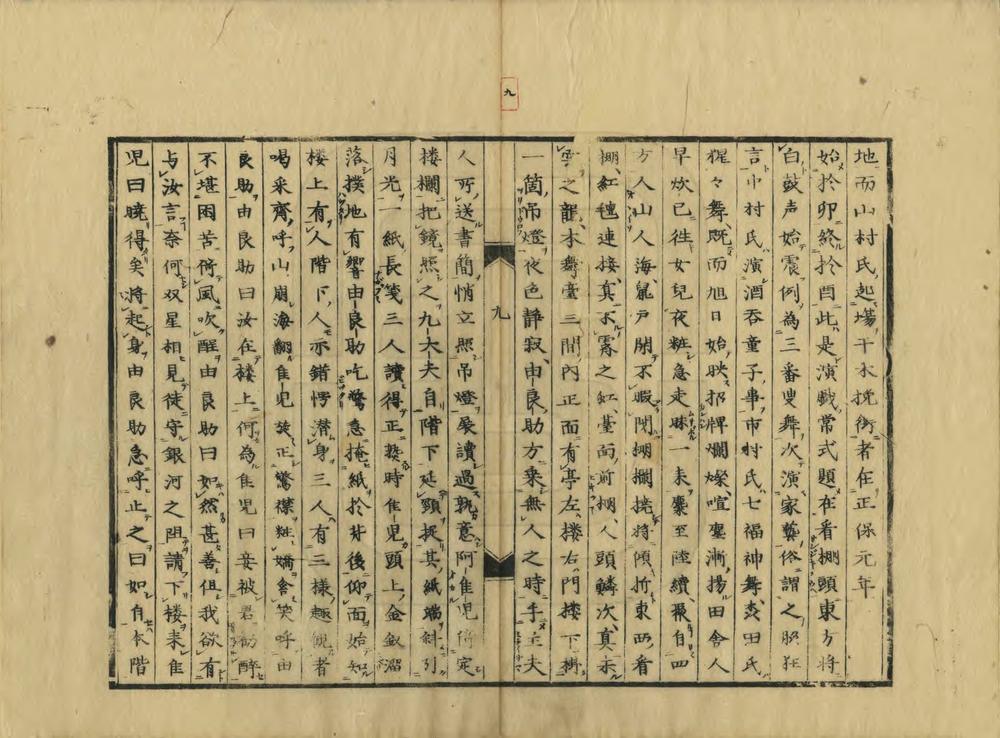 九
地而山村氏起場于木挽街者在正保元年
始於卯終於酉此是演戯常式題在看棚頭東方将
白鼓声始震例為三番叟舞次演家藝俗謂之脇狂
言中村氏演酒呑童子事市村氏七福神舞森田氏
猩々舞既而旭日始映招牌爛燦喧漸揚田舎人
早炊已往女児夜粧急走一来麇至陸續自四
方人山人海鼠戸開不暇閉棚欄撓将傾折東西看
棚紅氊連接真不霽之紅臺面前棚人頭鱗次真未
雲之龍本舞臺三間内正面有亭左楼右門楼下掛
一箇吊燈夜色静寂由良助方乗無人之時手主夫
九
人所送書簡悄立照吊燈展讀過孰意阿隹児倚定
楼欄把鏡照之九大夫自階下延頸捉其紙端斜引
月光一紙長箋三人讀得正熟時隹児頭上金釵溜
落撲地有響由良助吃驚急掩紙於背後仰面始知
楼上有人階下人亦錯愕潜身三人有三様趣観者
喝采齊呼山崩海翻隹児故正驚襟粧嬌含笑呼由
良助由良助曰汝在楼上何為隹児曰妾被君勧酔
不堪困苦倚風吹醒由良助曰如然甚善但我欲有
与汝言奈何双星相見徒守銀河之阻請下楼来隹
児曰暁得矣将起身由良助急呼止之曰如自本階